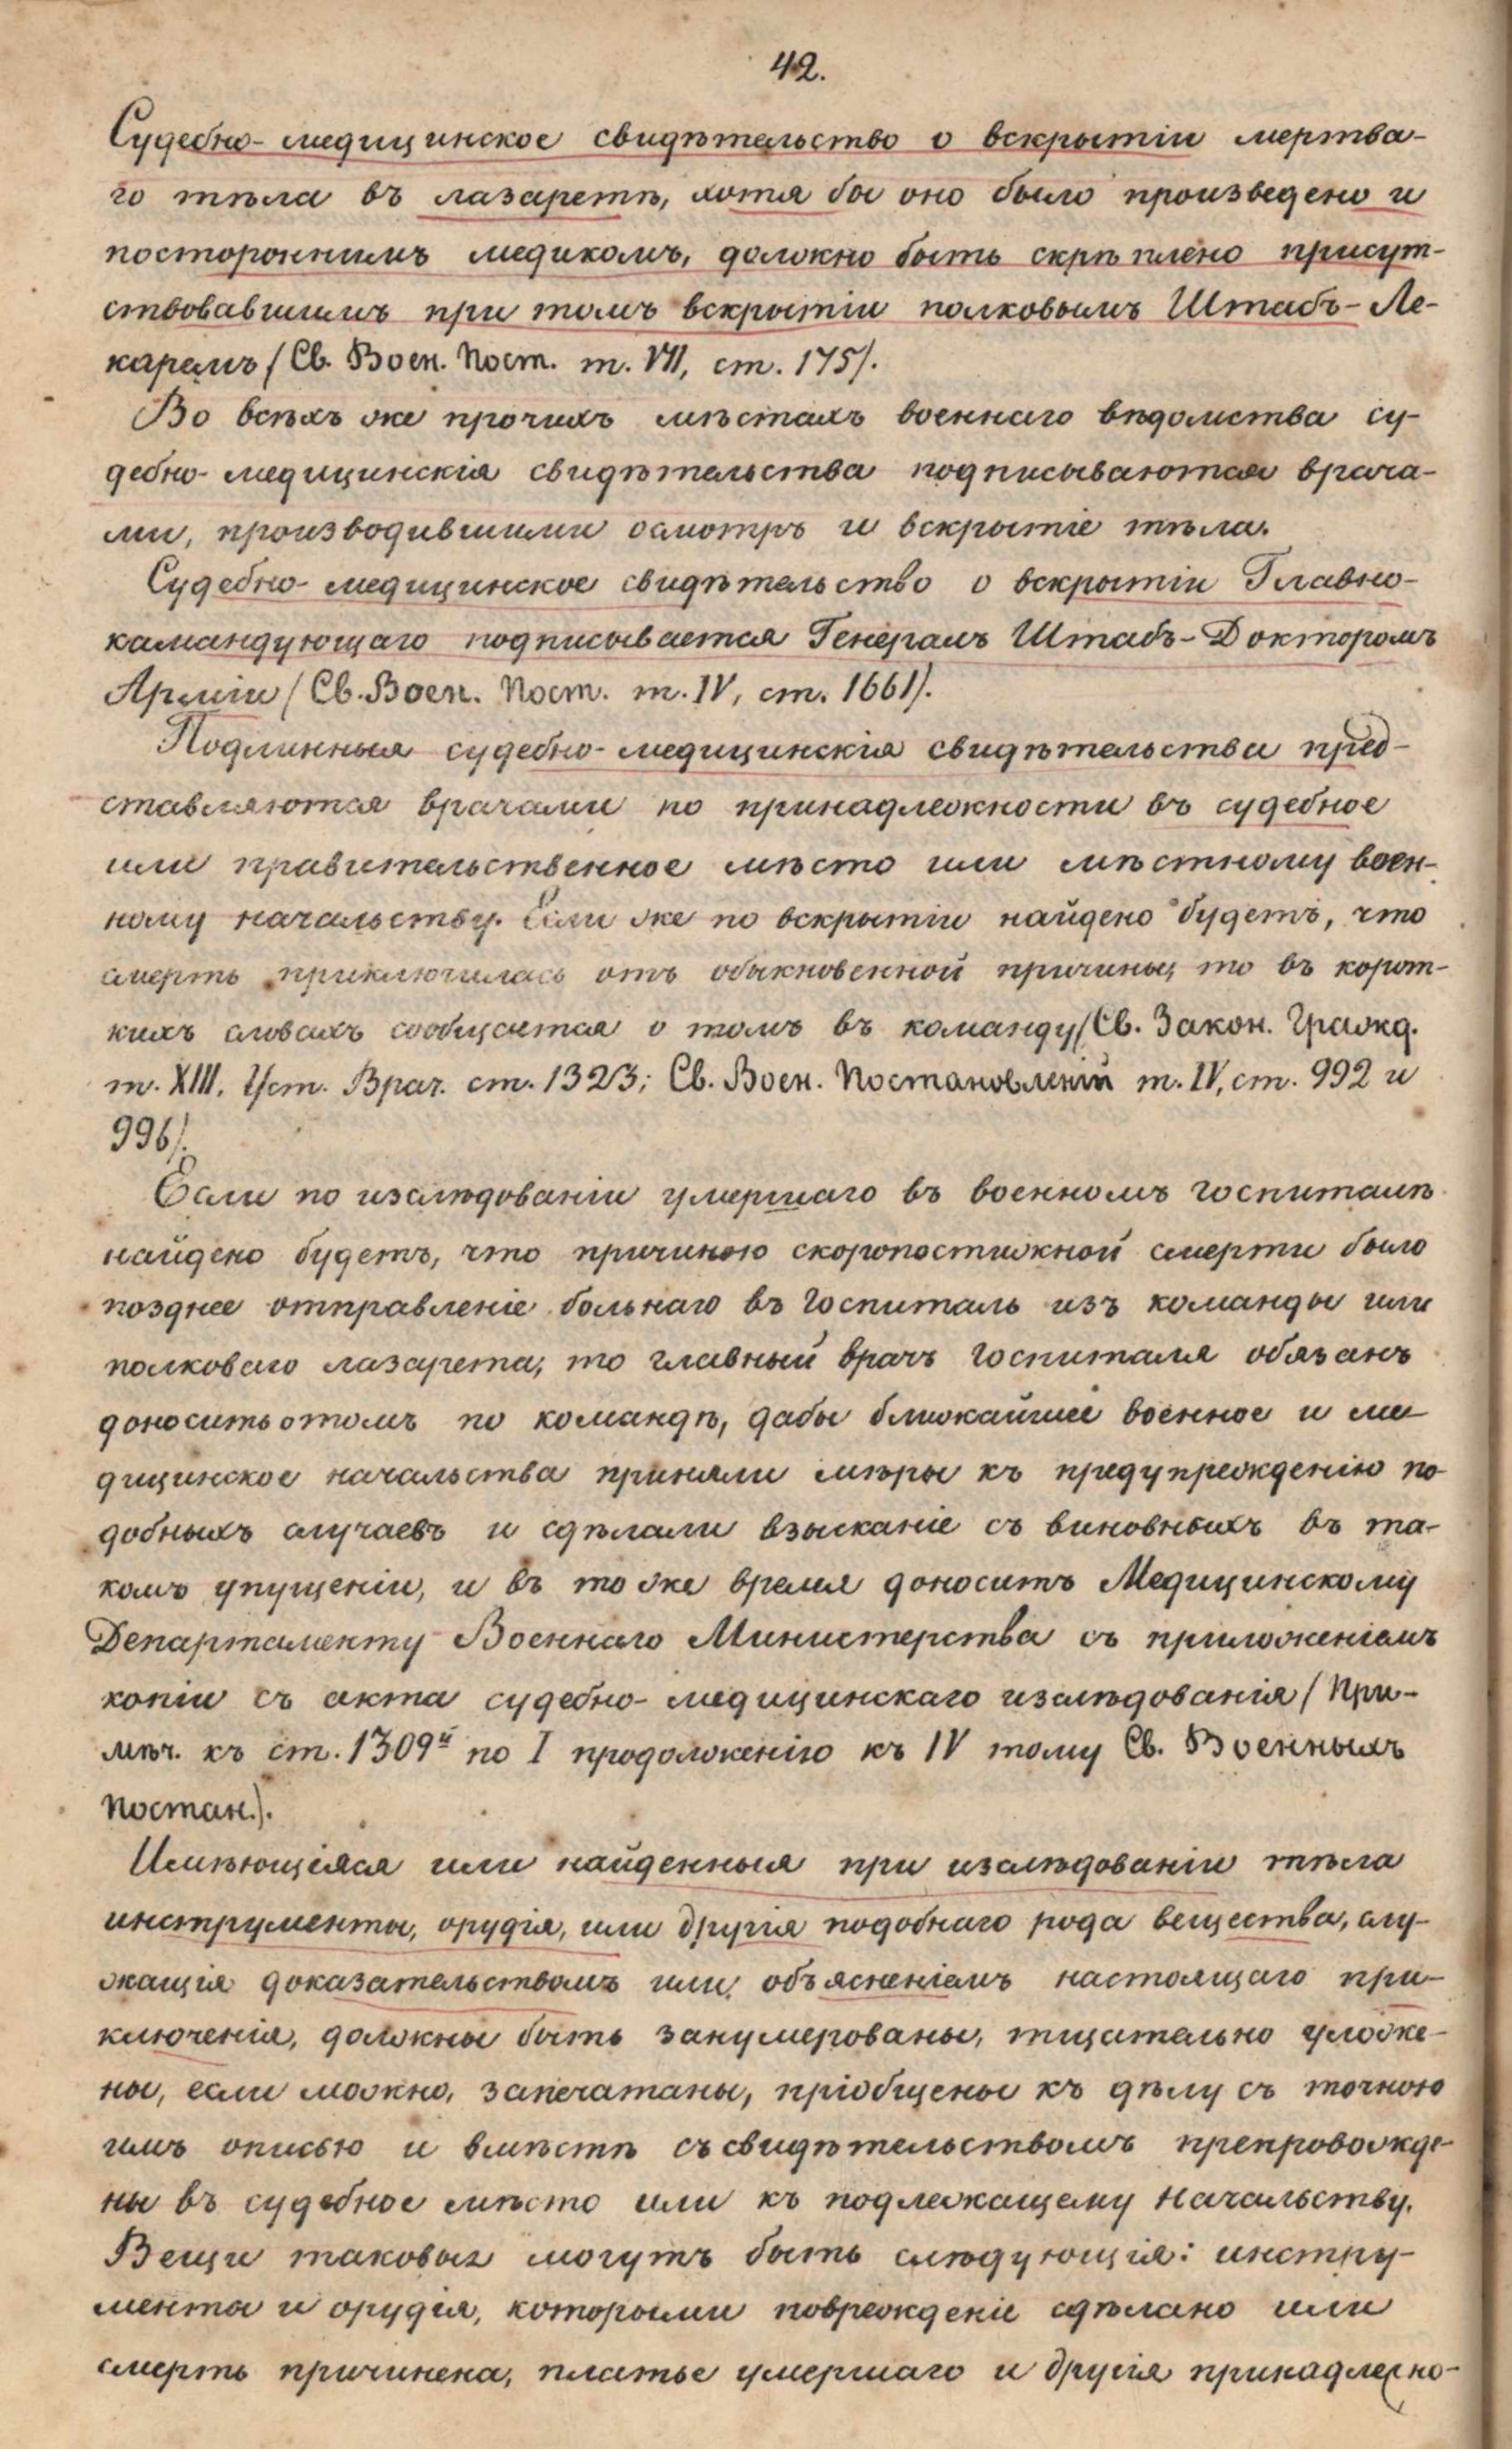 42.
Судебно-медицинское свидѣтельство о вскрытіи мертва-
го тѣла въ лазаретѣ, хотя бы оно было произведено и
постороннимъ медикомъ, должно быть скрѣплено присут-
ствовавшимъ при томъ вскрытіи полковымъ Штабъ-Ле-
каремъ (Св. Воен. Пост. т. VII, ст. 175).
Во всѣхъ же прочихъ мѣстахъ военнаго вѣдомства су-
дебно-медицинскія свидѣтельства подписываются врача-
ми, производившими осмотръ и вскрытіе тѣла.
Судебно-медицинское свидѣтельство о вскрытіи Главно-
камандующаго подписывается Генералъ Штабъ-Докторомъ
Арміи (Св. Воен. Пост. т. IV, ст. 1661).
Подлинныя судебно-медицинскія свидѣтельства пред-
ставляются врачами по принадлежности въ судебное
или правительственное мѣсто или мѣстному воен-
ному начальству. Если же по вскрытіи найдено будетъ, что
смерть приключилась отъ обыкновенной причины, то въ корот-
кихъ словахъ сообщается о томъ въ команду (Св. Закон. Гражд.
т. XIII. Уст. Врач. ст. 1323; Св. Воен. Постановленій т. IV, ст. 992 и
996).
Если по изслѣдованіи умершаго въ военномъ госпиталѣ
найдено будетъ, что причиною скоропостижной смерти было
позднее отправленіе больнаго въ госпиталь изъ команды или
полковаго лазарета, то главный врачъ госпиталя обязанъ
доносить о томъ по командѣ, дабы ближайшее военное и ме-
дицинское начальства приняли мѣры къ предупрежденію по-
добныхъ случаевъ и сдѣлали взысканіе съ виновныхъ въ та-
комъ упущеніи, и въ то же время доноситъ Медицинскому
Департаменту Военнаго Министерства съ приложеніемъ
копіи съ акта судебно-медицинскаго изслѣдованія (При-
мѣч. къ ст. 1309й по I продолженію къ IV тому Св. Военныхъ
Постан.).
Имѣющіяся или найденныя при изслѣдованіи тѣла
инструменты, орудія, или другія подобнаго рода вещества, слу-
жащія доказательствомъ или объясненіемъ настоящаго при-
ключенія, должны быть занумерованы, тщательно уложе-
ны, если можно, запечатаны, пріобщены къ дѣлу съ точною
имъ описью и вмѣстѣ съ свидѣтельствомъ препровожде-
ны въ судебное мѣсто или къ подлежащему начальству.
Вещи таковыя могутъ быть слѣдующія: инстру-
менты и орудія, которыми поврежденіе сдѣлано или
смерть причинена, платье умершаго и другія принадлежно-